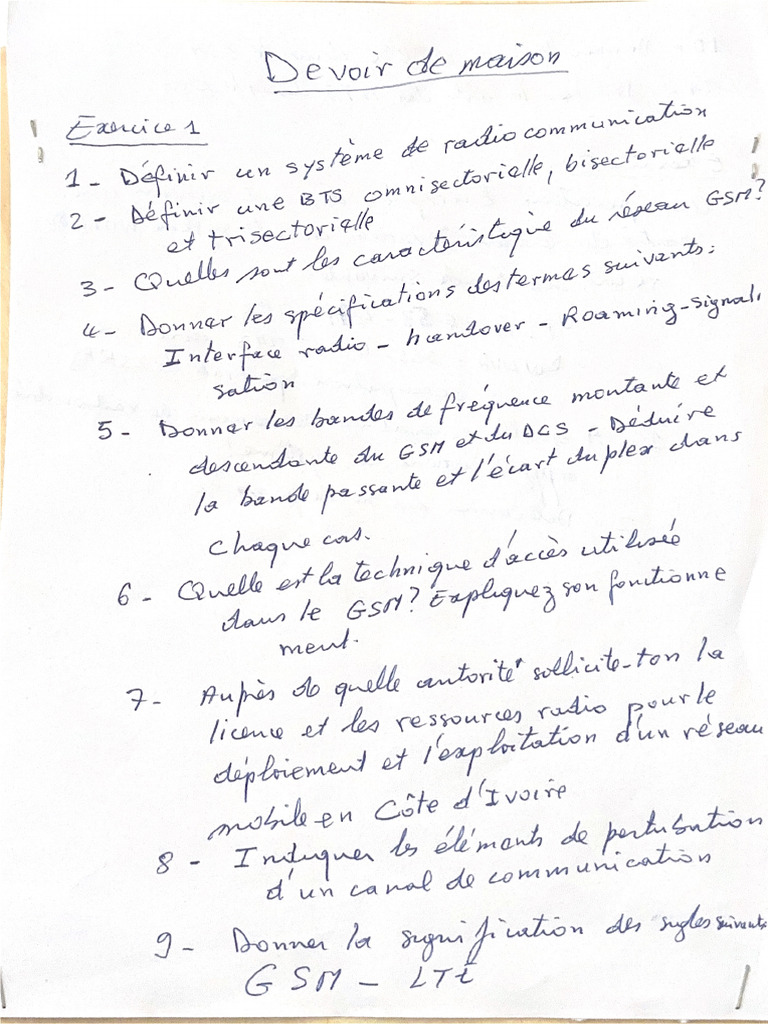 Devoir de maison
Exercice 1
1 - Définir un système de radiocommunication
2 - Définir une BTS omnisectorielle, bisectorielle
et trisectorielle
3 - Quelles sont les caractéristique du réseau GSM?
4 - Donner les spécifications des termes suivants:
Interface radio - handover - Roaming - signali
sation
5 - Donner les bandes de fréquence montante et
descendante du GSM et du DCS - Déduire
la bande passante et l'écart duplex dans
chaque cas.
6 - Quelle est la technique d'accès utilisée
dans le GSM? Expliquez son fonctionne
ment.
7 - Auprès de quelle autorité sollicite-ton la
licence et les ressources radio pour le
déploiement et l'exploitation d'un réseau
mobile en Côte d'Ivoire
8 - Indiquer les éléments de pertubation
d'un canal de communication
9 - Donner la signification des sigles suivants
GSM - LTE